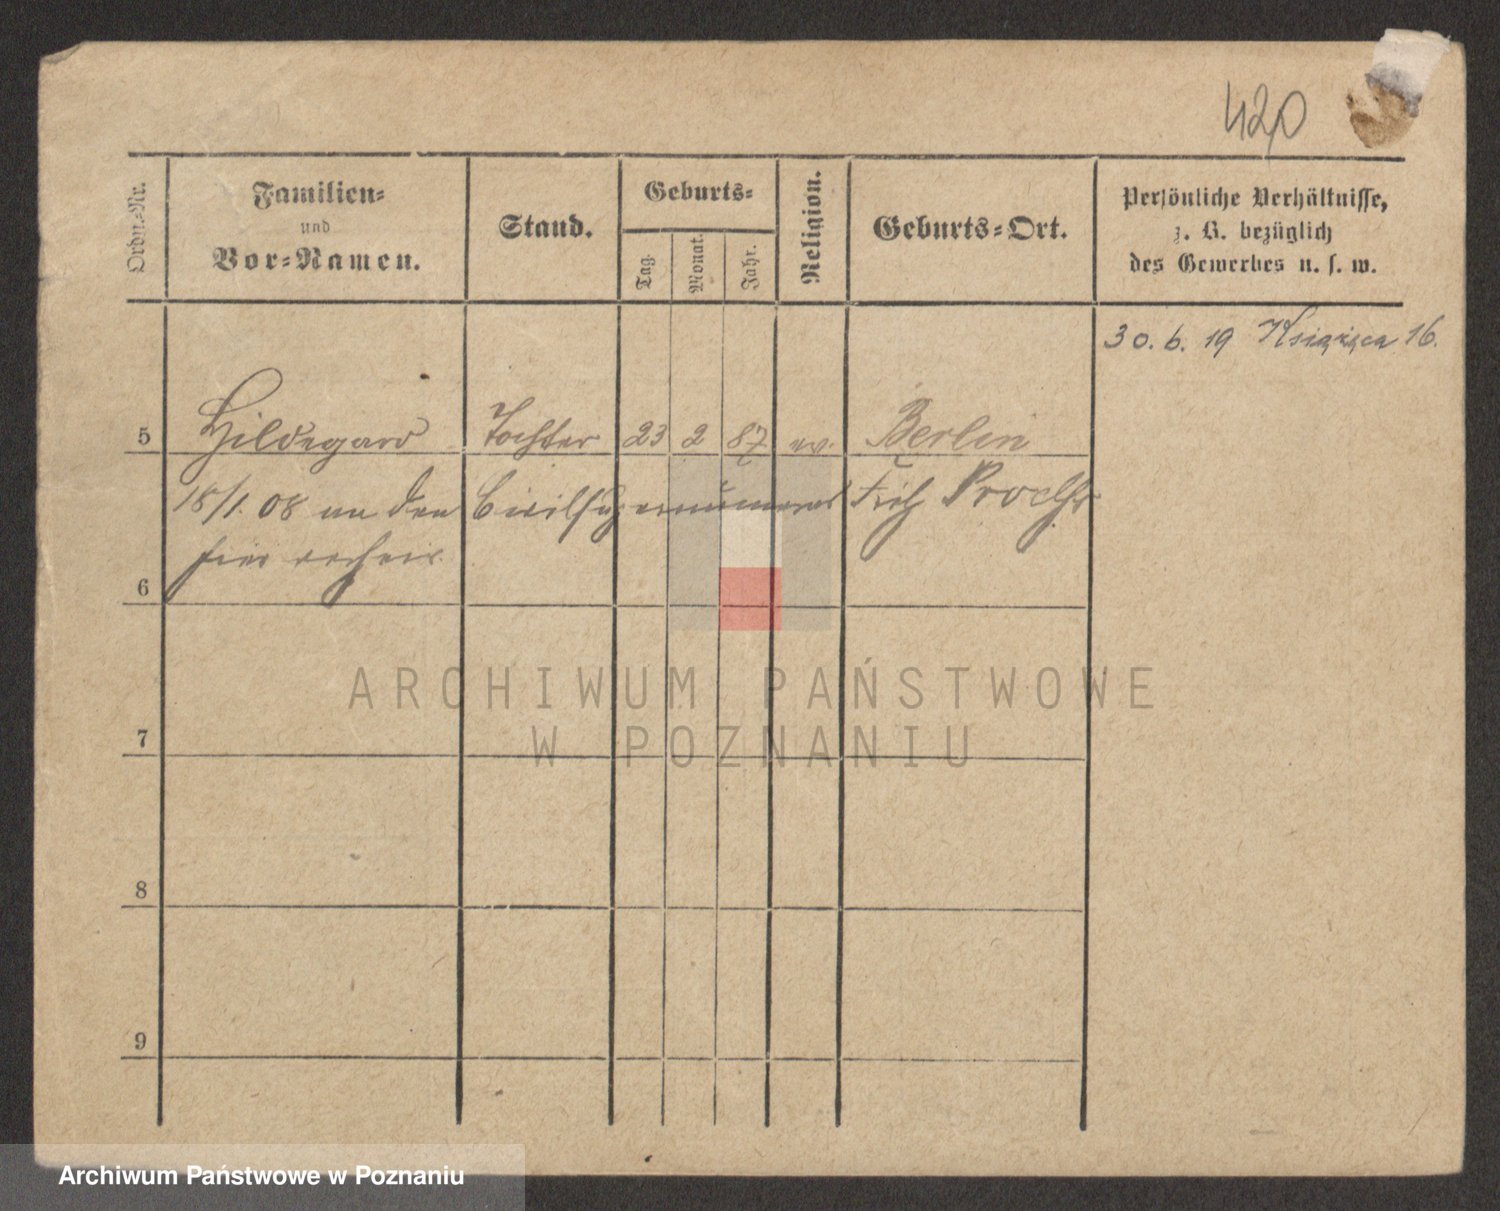 420
Ordn.-Nr.
Familien-
und
Vor-Namen.
Stand.
Geburts-
Tag.
Monat.
Jahr.
Religion.
Geburts-Ort.
Persönliche Verhältnisse,
z. B. bezüglich
des Gewerbes u. s. w.
30. 6. 19 Książęca 16.
5 Hildegard Tochter 23 2 87 ev. Berlin
18/1. 08 an den Civilsupernumerar
hier verheir.
6
7
8
9
ARCHIWUM PAŃSTWOWE
W POZNANIU
Archiwum Państwowe w Poznaniu